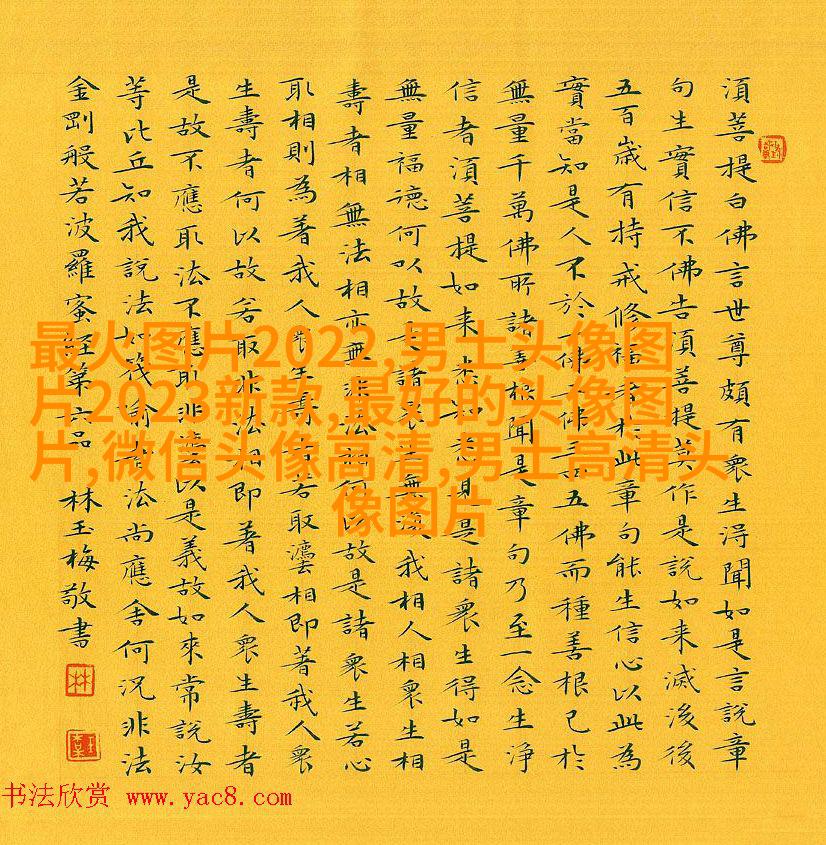 須菩提白佛言世尊頗有衆生淂聞如是言說章
句生實信不佛告須菩提莫作是說如来滅後後
五百歲有持戒修福者於此章句能生信心以此為
實當知是人不於一佛二佛三四五佛而種善根已於
無量千萬佛所諸善根聞是章句乃至一念生淨
信者須菩提如来悉知悉見是諸衆生得如是
無量福德何以故是諸衆生無復我相人相衆生相
壽者相無法相亦無非法相何以故是諸衆生若心
取相則為著我人衆生壽者若取灋相即著我人衆
生壽者何以故若取非法相即著我人衆生壽者
是故不應取法不應取非灋以是義故如來常說汝
等比丘知我說法如筏喻者法尚應舍何況非法
金剛般若波羅蜜經第六品 林玉梅敬書
林
最火图片2022,男士头像图
片2023新款,最好的头像图
片,微信头像高清,男士高清头
像图片
书法欣赏 www.yac8.com